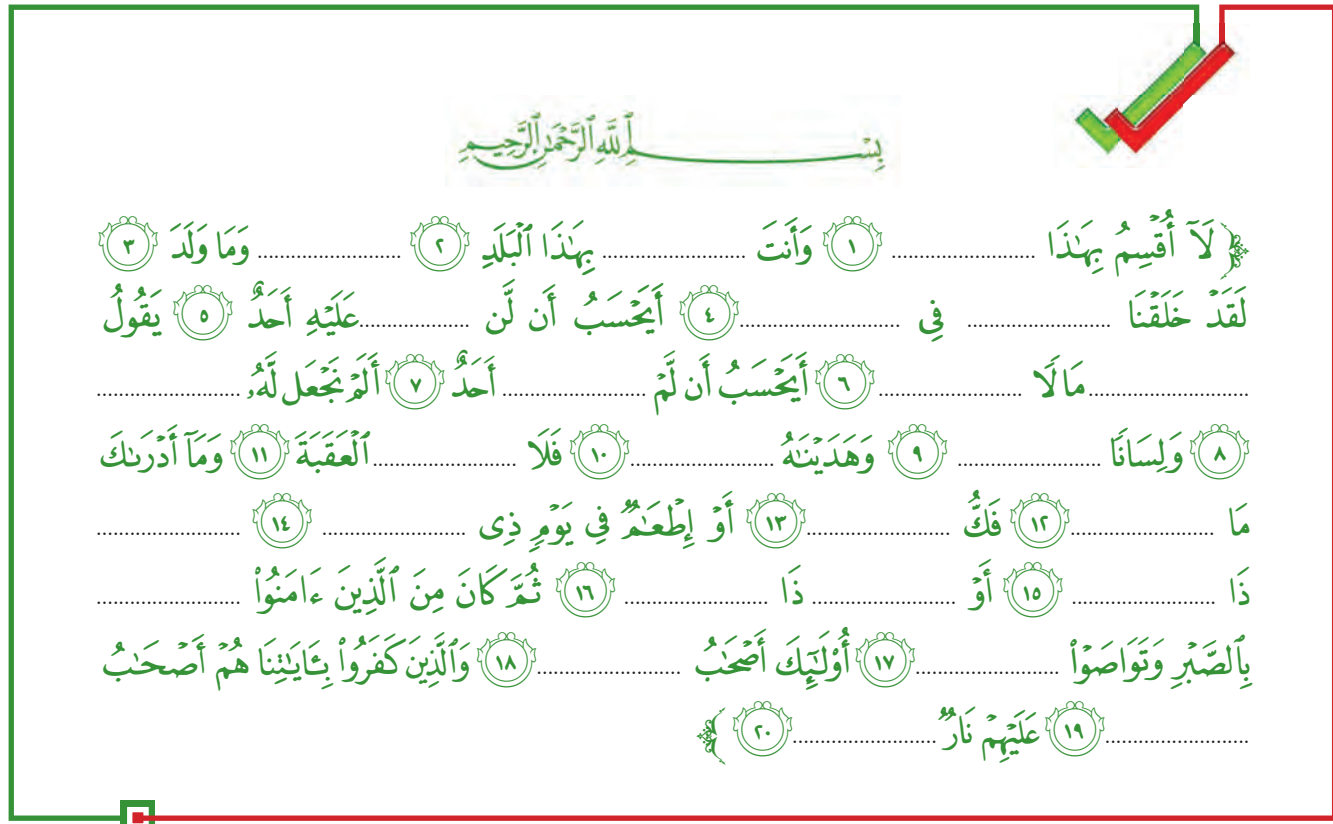 بِسْمِ ٱللَّهِ ٱلرَّحْمَٰنِ ٱلرَّحِيمِ
﴿ لَآ أُقْسِمُ بِهَٰذَا ........................ ١ وَأَنتَ ........................ بِهَٰذَا ٱلْبَلَدِ ٢ ........................ وَمَا وَلَدَ ٣
لَقَدْ خَلَقْنَا ........................ فِى ........................ ٤ أَيَحْسَبُ أَن لَّن ........................ عَلَيْهِ أَحَدٌ ٥ يَقُولُ
........................ مَالًا ........................ ٦ أَيَحْسَبُ أَن لَّمْ ........................ أَحَدٌ ٧ أَلَمْ نَجْعَل لَّهُۥ ........................
٨ وَلِسَانًا ........................ ٩ وَهَدَيْنَٰهُ ........................ ١٠ فَلَا ........................ ٱلْعَقَبَةَ ١١ وَمَآ أَدْرَىٰكَ
مَا ........................ ١٢ فَكُّ ........................ ١٣ أَوْ إِطْعَٰمٌ فِى يَوْمٍ ذِى ........................ ١٤ ........................
ذَا ........................ ١٥ أَوْ ........................ ذَا ........................ ١٦ ثُمَّ كَانَ مِنَ ٱلَّذِينَ ءَامَنُوا۟ ........................
بِٱلصَّبْرِ وَتَوَاصَوْا۟ ........................ ١٧ أُو۟لَٰٓئِكَ أَصْحَٰبُ ........................ ١٨ وَٱلَّذِينَ كَفَرُوا۟ بِـَٔايَٰتِنَا هُمْ أَصْحَٰبُ
........................ ١٩ عَلَيْهِمْ نَارٌ ........................ ٢٠ ﴾